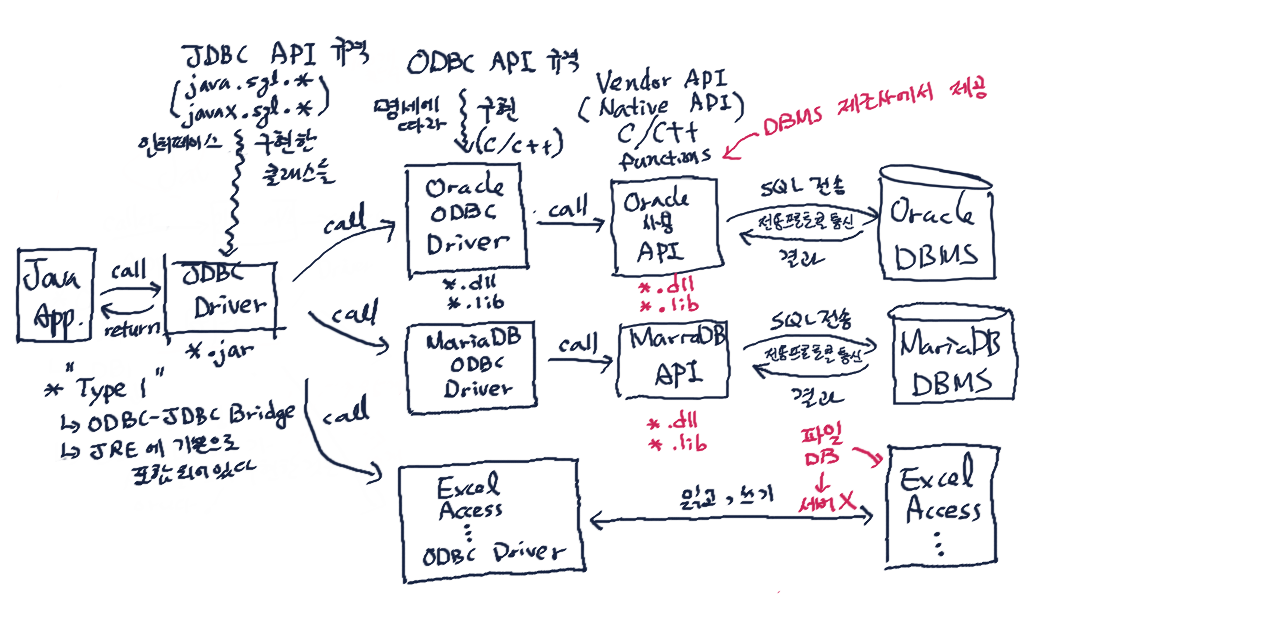 JDBC API 규격
(java.sql.*
javax.sql.*)
인터페이스
구현한
클래스들
ODBC API 규격
명세에
따라
구현
(C/C++)
Vendor API
(Native API)
C/C++
functions
DBMS 제조사에서 제공
Java
App.
call
return
JDBC
Driver
*.jar
* "Type 1"
↳ ODBC-JDBC Bridge
↳ JRE에 기본으로
포함되어있다
call
Oracle
ODBC
Driver
*.dll
*.lib
call
Oracle
사용
API
*.dll
*.lib
SQL 전송
전용프로토콜 통신
결과
Oracle
DBMS
call
MariaDB
ODBC
Driver
call
MariaDB
API
*.dll
*.lib
SQL 전송
전용프로토콜 통신
결과
MariaDB
DBMS
call
Excel
Access
⋮
ODBC Driver
읽고, 쓰기
파일
DB
↓
서버 X
Excel
Access
⋮